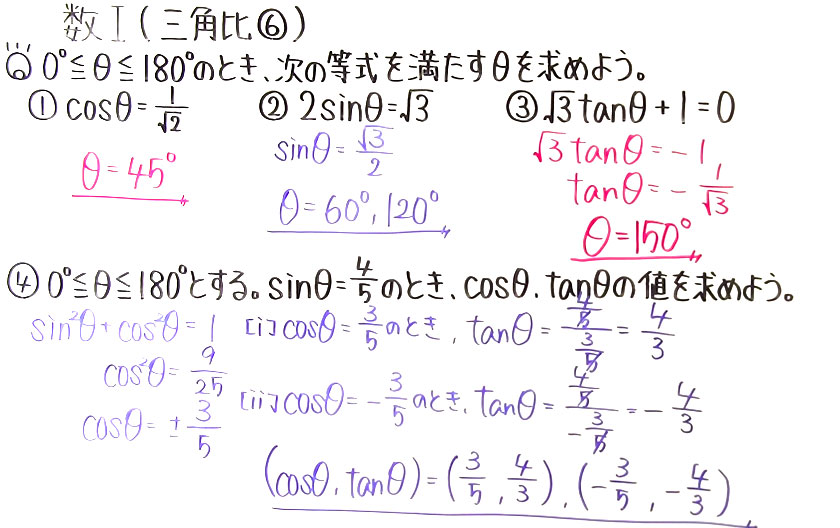 数Ⅰ(三角比⑥)
0°≦θ≦180°のとき、次の等式を満たすθを求めよう。
① cosθ=1/√2 ② 2sinθ=√3 ③ √3tanθ+1=0
θ=45°
sinθ=√3/2
θ=60°,120°
√3tanθ=-1
tanθ=-1/√3
θ=150°
④ 0°≦θ≦180°とする。sinθ=4/5のとき、cosθ.tanθの値を求めよう。
sin²θ+cos²θ=1
cos²θ=9/25
cosθ=±3/5
[i] cosθ=3/5のとき, tanθ=(4/5)/(3/5)=4/3
[ii] cosθ=-3/5のとき, tanθ=(4/5)/(-3/5)=-4/3
(cosθ, tanθ)=(3/5, 4/3), (-3/5, -4/3)